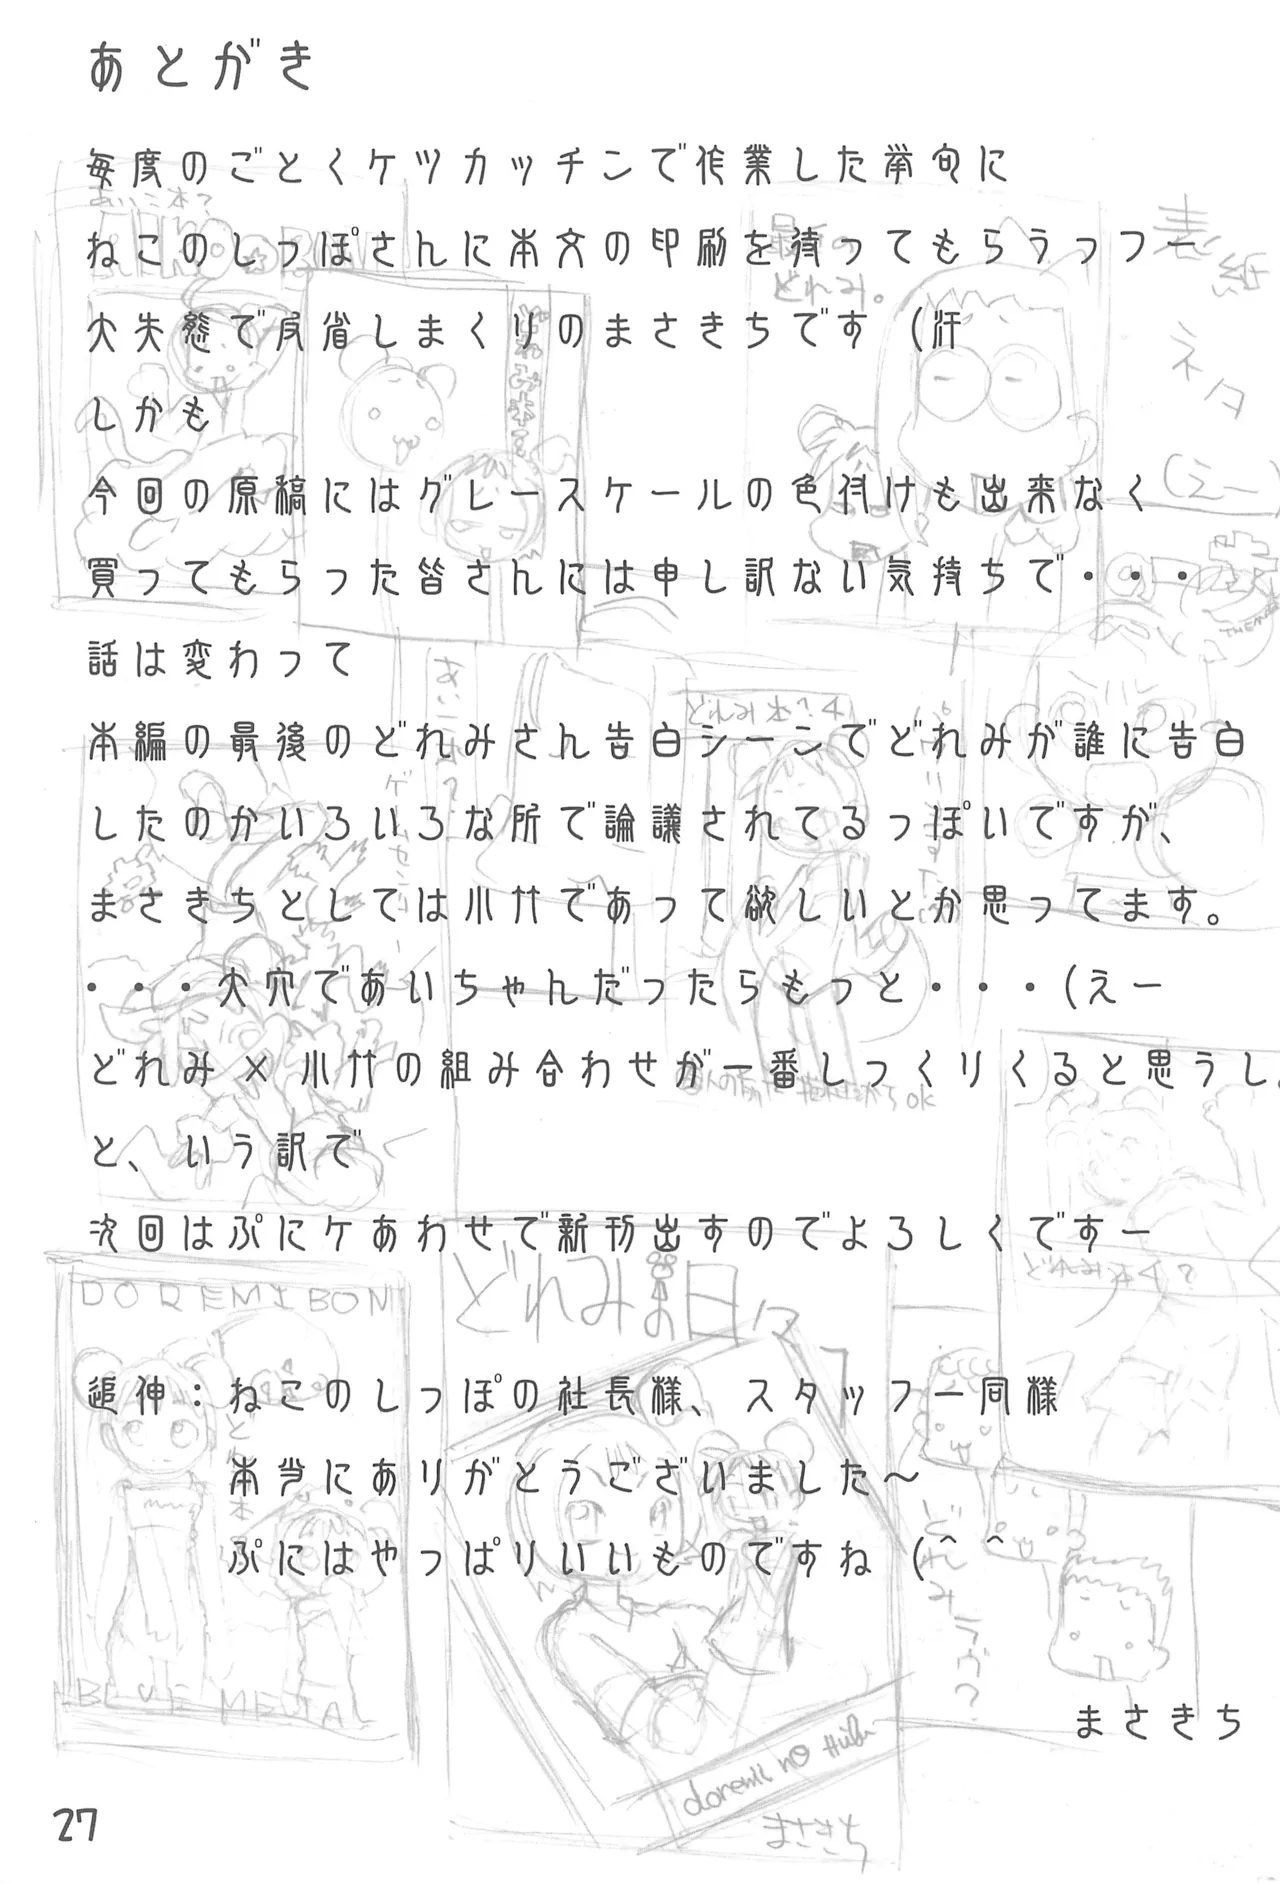 あとがき
毎度のごとくケツカッチンで作業した挙句に
ねこのしっぽさんに本文の印刷を待ってもらうっつー
大失態で反省しまくりのまさきちです（汗
しかも
今回の原稿にはグレースケールの色付けも出来なく
買ってもらった皆さんには申し訳ない気持ちで・・・
話は変わって
本編の最後のどれみさん告白シーンでどれみが誰に告白
したのかいろいろな所で論議されてるっぽいですが、
まさきちとしては小竹であって欲しいとか思ってます。
・・・大穴であいちゃんだったらもっと・・・（えー
どれみ×小竹の組み合わせが一番しっくりくると思うし。
と、いう訳で
次回はぷにケあわせで新刊出すのでよろしくですー
追伸：ねこのしっぽの社長様、スタッフ一同様
本当にありがとうございました〜
ぷにはやっぱりいいものですね（＾＾
まさきち
27
あいこ本？
最後の
どれみ。
表紙
ネタ
（えー
どれみ本？
DOREMIBON
BLUE METAL
どれみの日々
doremi no Hibi
まさきち
どれみラヴ？